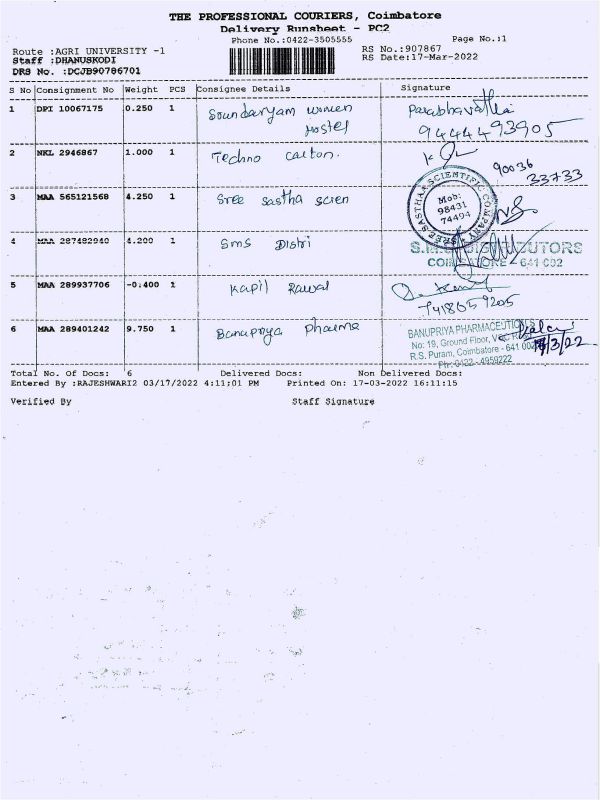 THE PROFESSIONAL COURIERS, Coimbatore
Delivery Runsheet - PC2
Phone No.:0422-3505555 Page No.:1
Route :AGRI UNIVERSITY -1 RS No.:907867
Staff :DHANUSKODI RS Date:17-Mar-2022
DRS No. :DCJB90786701
S No Consignment No Weight PCS Consignee Details Signature
1 DPI 10067175 0.250 1 Soundaryam women
Hostel
9444493905
2 NKL 2946867 1.000 1 Techno carton.
90036
33733
3 MAA 565121568 4.250 1 Sree sastha scien
SREE SASTHA SCIENTIFIC COMPANY
Mob:
98431
74494
4 MAA 287482940 4.200 1 Sms Distri
COIMBATORE - 641 002
5 MAA 289937706 -0.400 1 Kapil Rawal
7418659205
6 MAA 289401242 9.750 1 Banupriya pharma
BANUPRIYA PHARMACEUTICALS
No: 19, Ground Floor,
R.S. Puram, Coimbatore - 641 002
Ph: 0422 - 4959222
17/3/22
Total No. Of Docs: 6 Delivered Docs: Non Delivered Docs:
Entered By :RAJESHWARI2 03/17/2022 4:11;01 PM Printed On: 17-03-2022 16:11:15
Verified By Staff Signature